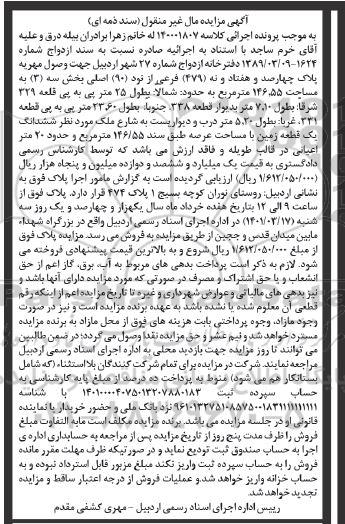 آگهی مزایده مال غیر منقول (سند ذمه ای)
به موجب پرونده اجرائی کلاسه ۱۴۰۰۰۱۸۰۷ له خانم زهرا برادران بیله درق و علیه
آقای خرم ساجد با استناد به اجرائیه صادره نسبت به سند ازدواج شماره
۱۶۲۴-۱۳۸۹/۰۳/۰۹ دفترخانه ازدواج شماره ۲۷ شهر اردبیل جهت وصول مهریه
پلاک چهارصد و هفتاد و نه (۴۷۹) فرعی از نود (۹۰) اصلی بخش سه (۳) به
مساحت ۱۴۶.۵۵ مترمربع به حدود: شمالا: بطول ۲۵ متر پی به پی قلعه ۳۲۹
شرقا: بطول ۷.۱۰ متر بدیوار قطعه ۳۳۸، جنوبا: بطول ۲۳.۶۰ متر پی به پی قطعه
۳۳۱، غربا: بطول ۵.۳۰ متر درب و دیواریست به شارع ملک مورد نظر ششدانگ
یک قطعه زمین با مساحت عرصه طبق سند ۱۴۶/۵۵ مترمربع و حدود ۲۰ متر
اعیانی در قالب طویله و فاقد ارزش می باشد که توسط کارشناس رسمی
دادگستری به قیمت یک میلیارد و ششصد و دوازده میلیون و پنجاه هزار ریال
(۱/۶۱۲/۰۵۰/۰۰۰ ریال) ارزیابی گردیده است به گزارش مامور اجرا پلاک فوق به
نشانی اردبیل: روستای نوران کوچه بسیج ۱ پلاک ۴۷۴ قرار دارد. پلاک فوق از
ساعت ۹ الی ۱۲ بتاریخ هفده خرداد ماه سال یکهزار و چهارصد و یک روز سه
شنبه (۱۴۰۱/۰۳/۱۷) در اداره اجرای اسناد رسمی اردبیل واقع در بزرگراه شهداء
مابین میدان قدس و ججین از طریق مزایده به فروش می رسد. مزایده پلاک فوق
از مبلغ ۱/۶۱۲/۰۵۰/۰۰۰ ریال شروع و به بالاترین قیمت پیشنهادی فروخته می
شود. لازم به ذکر است پرداخت بدهی های مربوط به آب، برق، گاز اعم از حق
انشعاب و یا حق اشتراک و مصرف در صورتی که مورد مزایده دارای آنها باشد و
نیز بدهی های مالیاتی و عوارض شهرداری و غیره تا تاریخ مزایده اعم از اینکه رقم
قطعی آن معلوم شده یا نشده باشد به عهده برنده مزایده است و نیز در صورت
وجود مازاد، وجوه پرداختی بابت هزینه های فوق از محل مازاد به برنده مزایده
مسترد خواهد شد و نیم عشر و حق مزایده نقدا وصول می گردد؛ در ضمن طالبین
می توانند تا روز مزایده جهت بازدید محلی به اداره اجرای اسناد رسمی اردبیل
مراجعه نمایند. شرکت در مزایده برای تمام شرکت کنندگان بلااستثناء (که شامل
بستانکار هم می شود) منوط به پرداخت ده درصد از مبلغ پایه کارشناسی به
حساب سپرده ثبت با شناسه
نزد بانک ملی و حضور خریدار یا نماینده
قانونی او در جلسه مزایده می باشد. برنده مزایده مکلف است مابه التفاوت مبلغ
فروش را ظرف مدت پنج روز از تاریخ مزایده پس از مراجعه به حسابداری اداره ی
اجرا به حساب صندوق ثبت تودیع نماید و در صورتیکه ظرف مهلت مقرر مانده
فروش را به حساب سپرده ثبت واریز نکند مبلغ مزبور قابل استرداد نبوده و به
حساب خزانه واریز خواهد شد و عملیات فروش از درجه اعتبار ساقط و مزایده
تجدید خواهد شد.
رییس اداره اجرای اسناد رسمی اردبیل – مهری کشفی مقدم